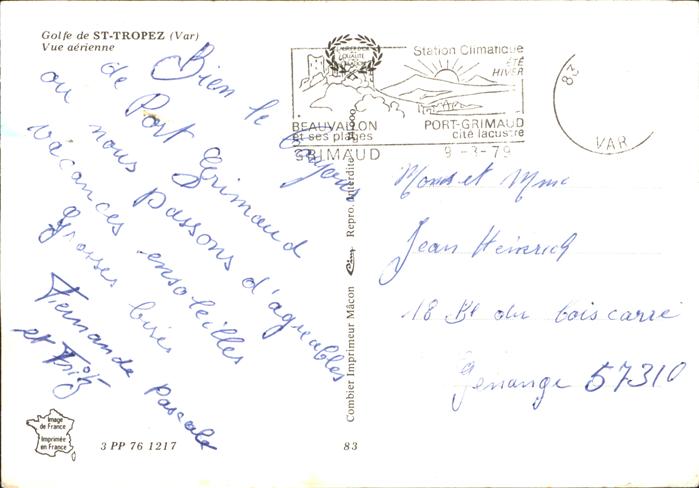 Golfe de ST-TROPEZ (Var)
Vue aérienne
Bien le bonjour
de Port Grimaud
ou nous passons d'agréables
vacances ensoleillées
Grosses bises
Fernande Pascale
et Fritz
Image
de France
Imprimée
en France
3 PP 76 1217
83
Combier Imprimeur Mâcon Cim Repro. interdite
Station Climatique
ÉTÉ
HIVER
BEAUVALLON
et ses plages
PORT-GRIMAUD
cité lacustre
GRIMAUD
9-3-79
83
VAR
et Mme
Jean Heinrich
18 Bd du bois carré
57310